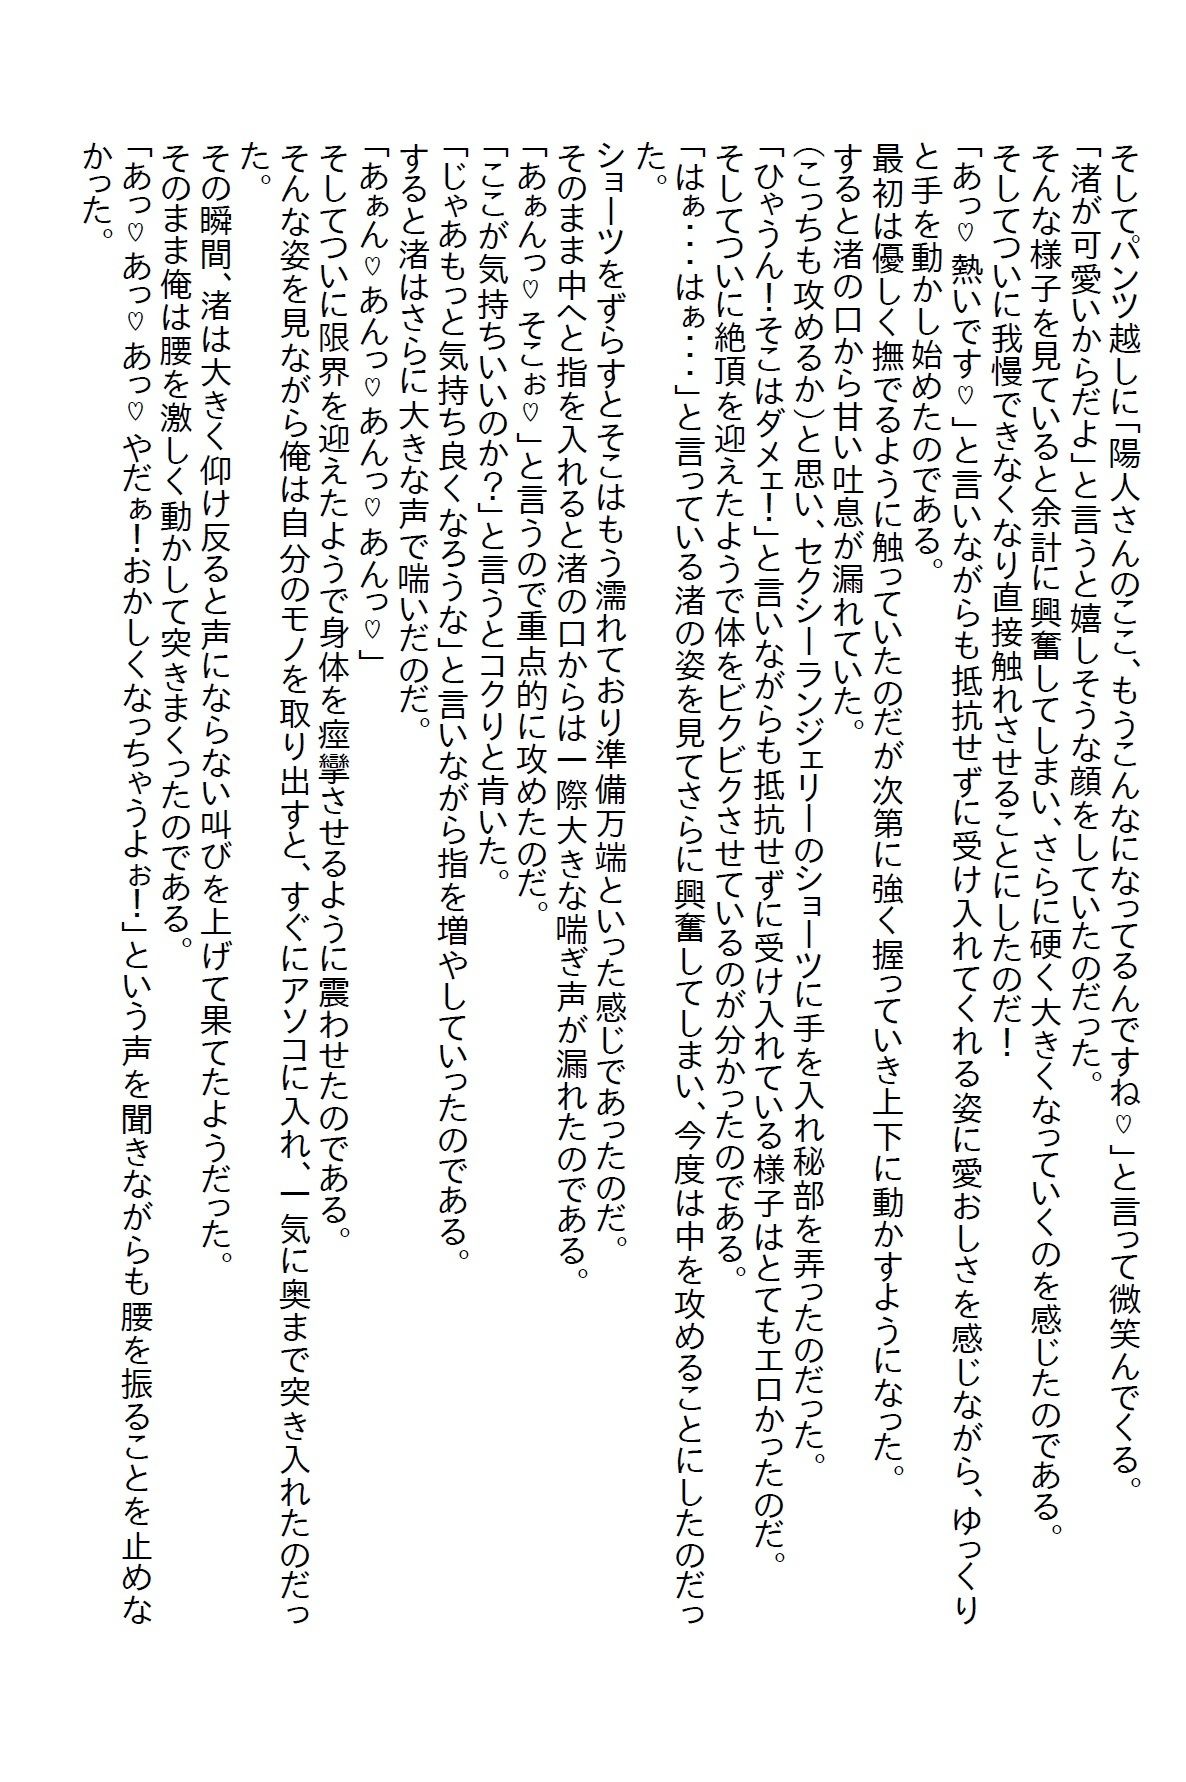 そしてパンツ越しに「陽人さんのここ、もうこんなになってるんですね♡」と言って微笑んでくる。
「渚が可愛いからだよ」と言うと嬉しそうな顔をしていたのだった。
そんな様子を見ていると余計に興奮してしまい、さらに硬く大きくなっていくのを感じたのである。
そしてついに我慢できなくなり直接触れさせることにしたのだ！
「あっ♡熱いです♡」と言いながらも抵抗せずに受け入れてくれる姿に愛おしさを感じながら、ゆっくり
と手を動かし始めたのである。
最初は優しく撫でるように触っていたのだが次第に強く握っていき上下に動かすようになった。
すると渚の口から甘い吐息が漏れていた。
（こっちも攻めるか）と思い、セクシーランジェリーのショーツに手を入れ秘部を弄ったのだった。
「ひゃうん！そこはダメェ！」と言いながらも抵抗せずに受け入れている様子はとてもエロかったのだ。
そしてついに絶頂を迎えたようで体をビクビクさせているのが分かったのである。
「はぁ・・・はぁ・・・」と言っている渚の姿を見てさらに興奮してしまい、今度は中を攻めることにしたのだっ
た。
ショーツをずらすとそこはもう濡れており準備万端といった感じであったのだ。
そのまま中へと指を入れると渚の口からは一際大きな喘ぎ声が漏れたのである。
「あぁんっ♡そこぉ♡」と言うので重点的に攻めたのだ。
「ここが気持ちいいのか？」と言うとコクりと肯いた。
「じゃあもっと気持ち良くなろうな」と言いながら指を増やしていったのである。
すると渚はさらに大きな声で喘いだのだ。
「あぁん♡あんっ♡あんっ♡あんっ♡」
そしてついに限界を迎えたようで身体を痙攣させるように震わせたのである。
そんな姿を見ながら俺は自分のモノを取り出すと、すぐにアソコに入れ、一気に奥まで突き入れたのだっ
た。
その瞬間、渚は大きく仰け反ると声にならない叫びを上げて果てたようだった。
そのまま俺は腰を激しく動かして突きまくったのである。
「あっ♡あっ♡あっ♡やだぁ！おかしくなっちゃうよぉ！」という声を聞きながらも腰を振ることを止めな
かった。